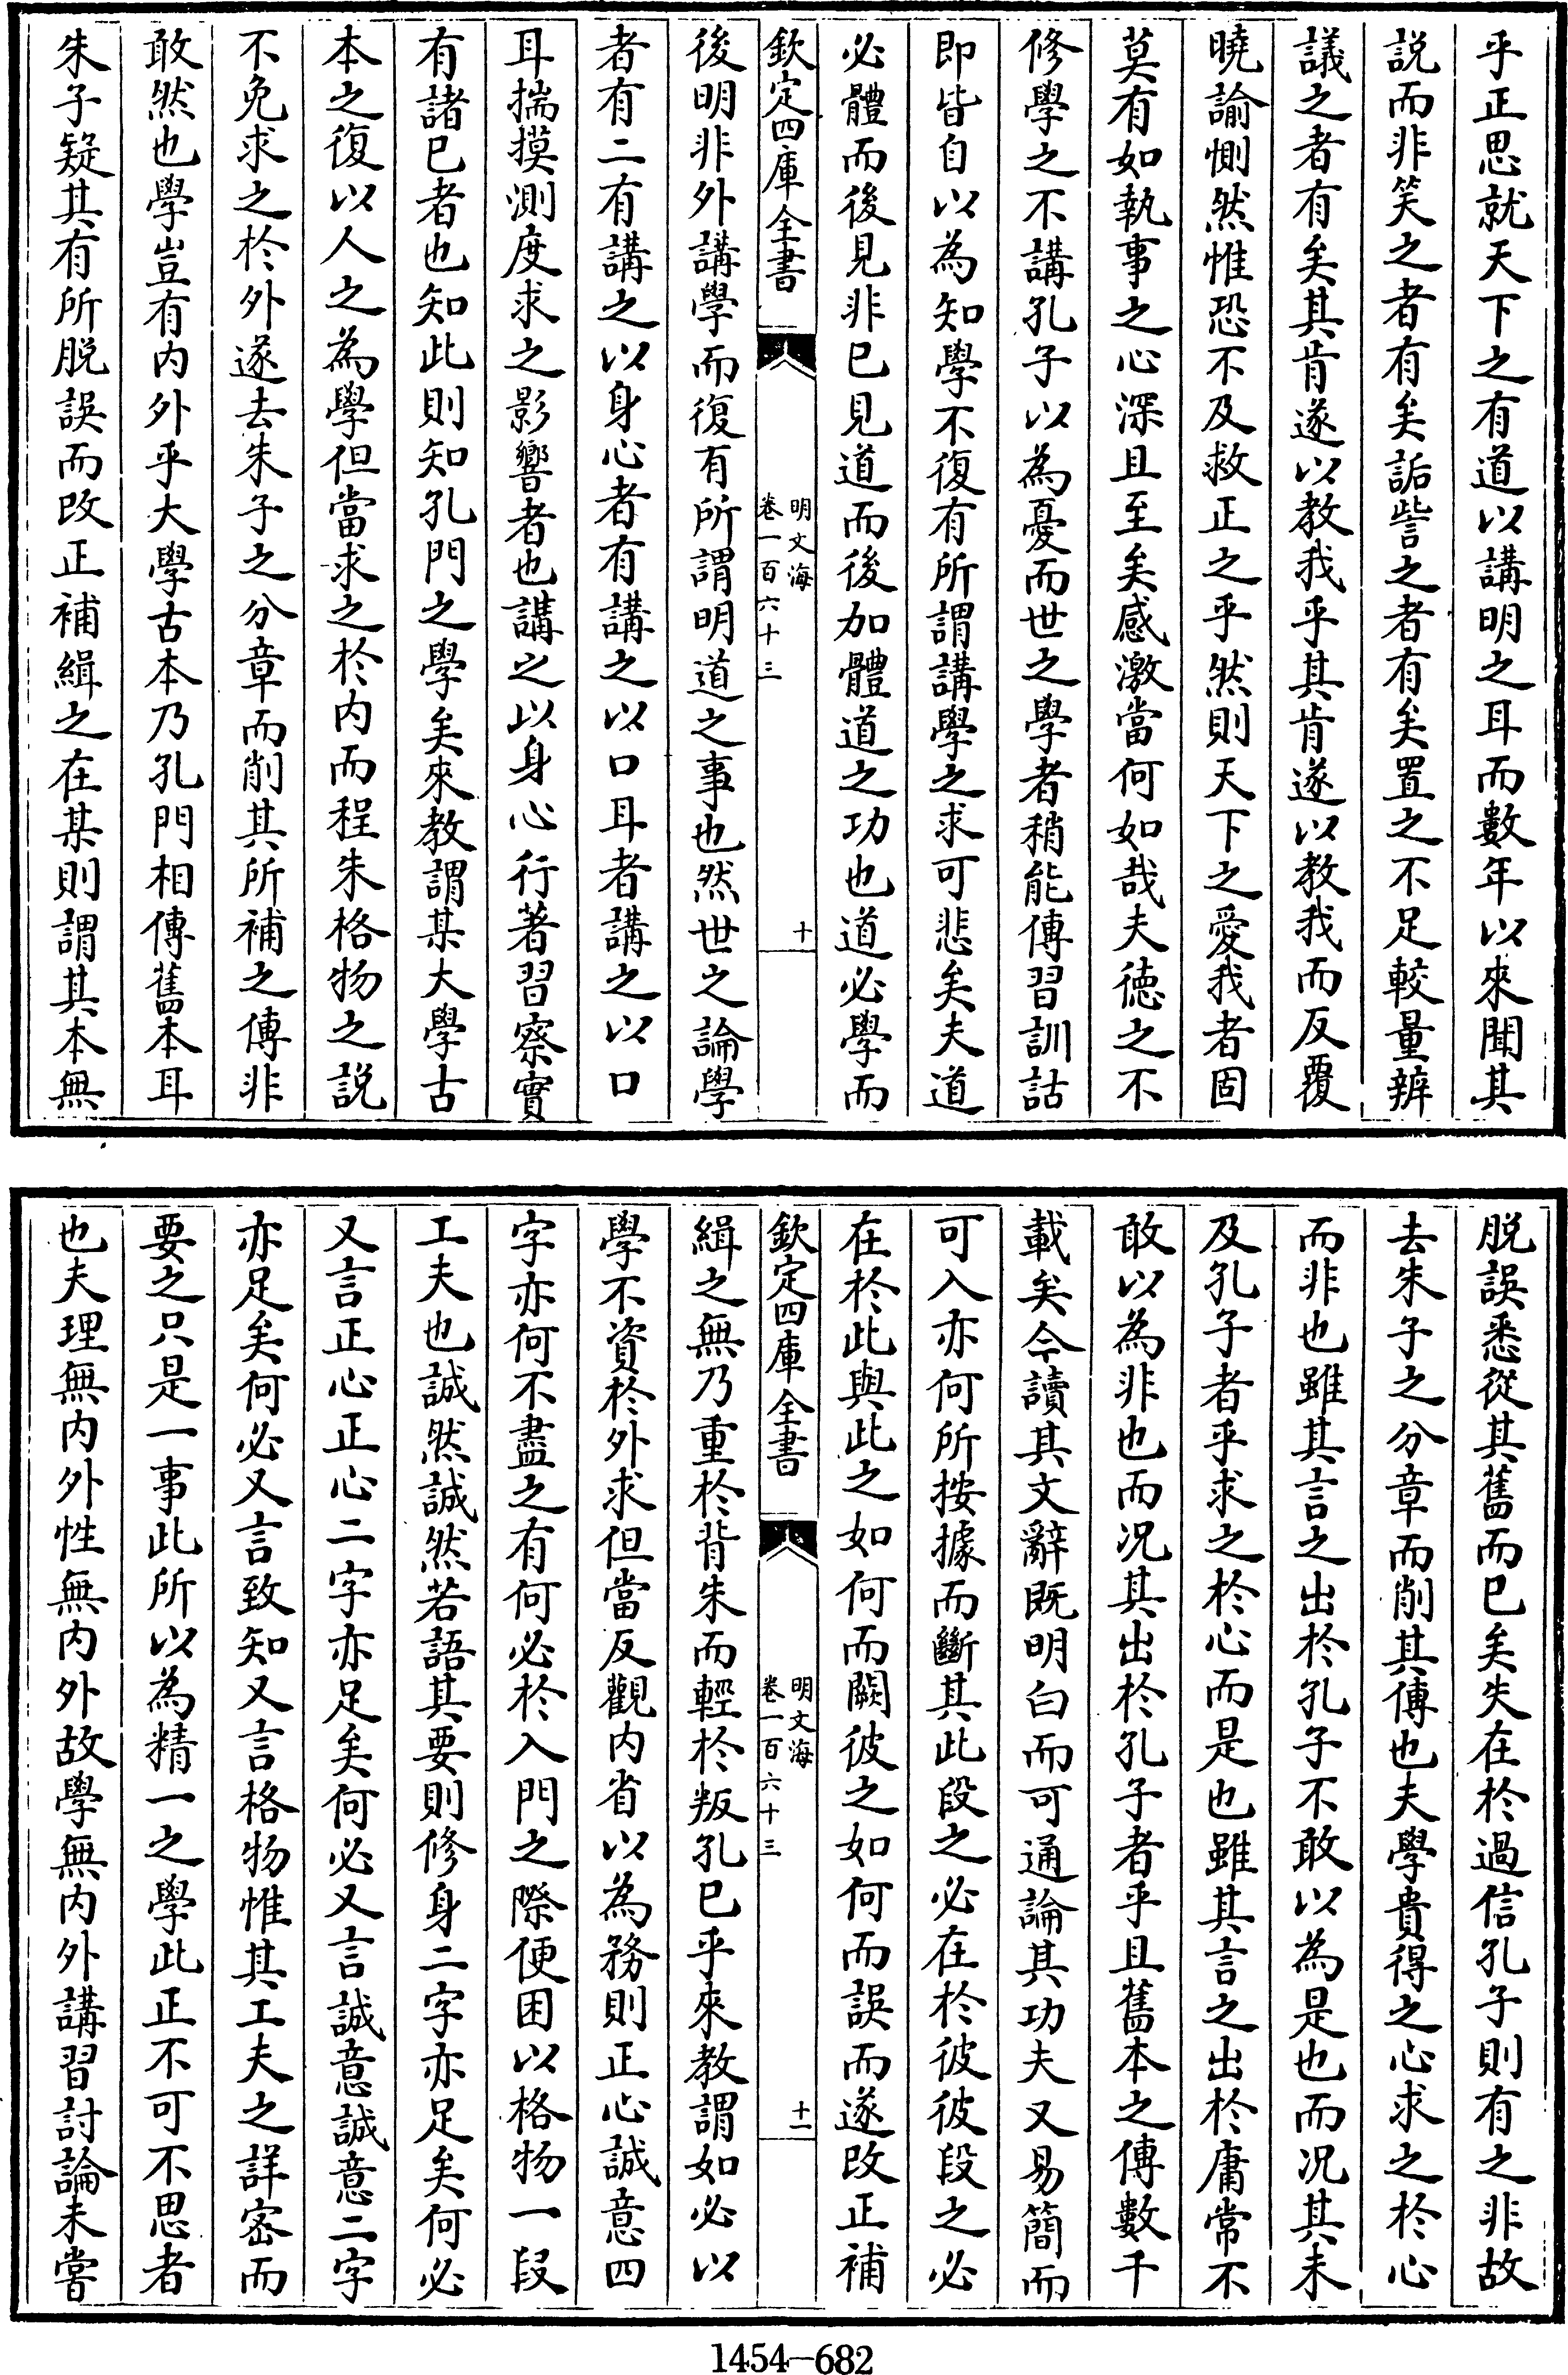 乎正思就天下之有道以講明之耳而數年以來聞其
説而非笑之者有矣詬訾之者有矣置之不足較量辨
議之者有矣其肯遂以教我乎其肯遂以教我而反覆
曉諭惻然惟恐不及救正之乎然則天下之愛我者固
莫有如執事之心深且至矣感激當何如哉夫德之不
修學之不講孔子以為憂而世之學者稍能傳習訓詁
即皆自以為知學不復有所謂講學之求可悲矣夫道
必體而後見非已見道而後加體道之功也道必學而
欽定四庫全書
明文海
卷一百六十三
十
後明非外講學而復有所謂明道之事也然世之論學
者有二有講之以身心者有講之以口耳者講之以口
耳揣摸測度求之影響者也講之以身心行著習察實
有諸已者也知此則知孔門之學矣來教謂某大學古
本之復以人之為學但當求之於内而程朱格物之説
不免求之於外遂去朱子之分章而削其所補之傳非
敢然也學豈有内外乎大學古本乃孔門相傳舊本耳
朱子疑其有所脱誤而改正補緝之在某則謂其本無
脱誤悉從其舊而已矣失在於過信孔子則有之非故
去朱子之分章而削其傳也夫學貴得之心求之於心
而非也雖其言之出於孔子不敢以為是也而况其未
及孔子者乎求之於心而是也雖其言之出於庸常不
敢以為非也而况其出於孔子者乎且舊本之傳數千
載矣今讀其文辭既明白而可通論其功夫又易簡而
可入亦何所按據而斷其此段之必在於彼彼段之必
在於此與此之如何而闕彼之如何而誤而遂改正補
欽定四庫全書
明文海
卷一百六十三
十一
緝之無乃重於背朱而輕於叛孔已乎來教謂如必以
學不資於外求但當反觀内省以為務則正心誠意四
字亦何不盡之有何必於入門之際便困以格物一段
工夫也誠然誠然若語其要則修身二字亦足矣何必
又言正心正心二字亦足矣何必又言誠意誠意二字
亦足矣何必又言致知又言格物惟其工夫之詳密而
要之只是一事此所以為精一之學此正不可不思者
也夫理無内外性無内外故學無内外講習討論未嘗
1454—682